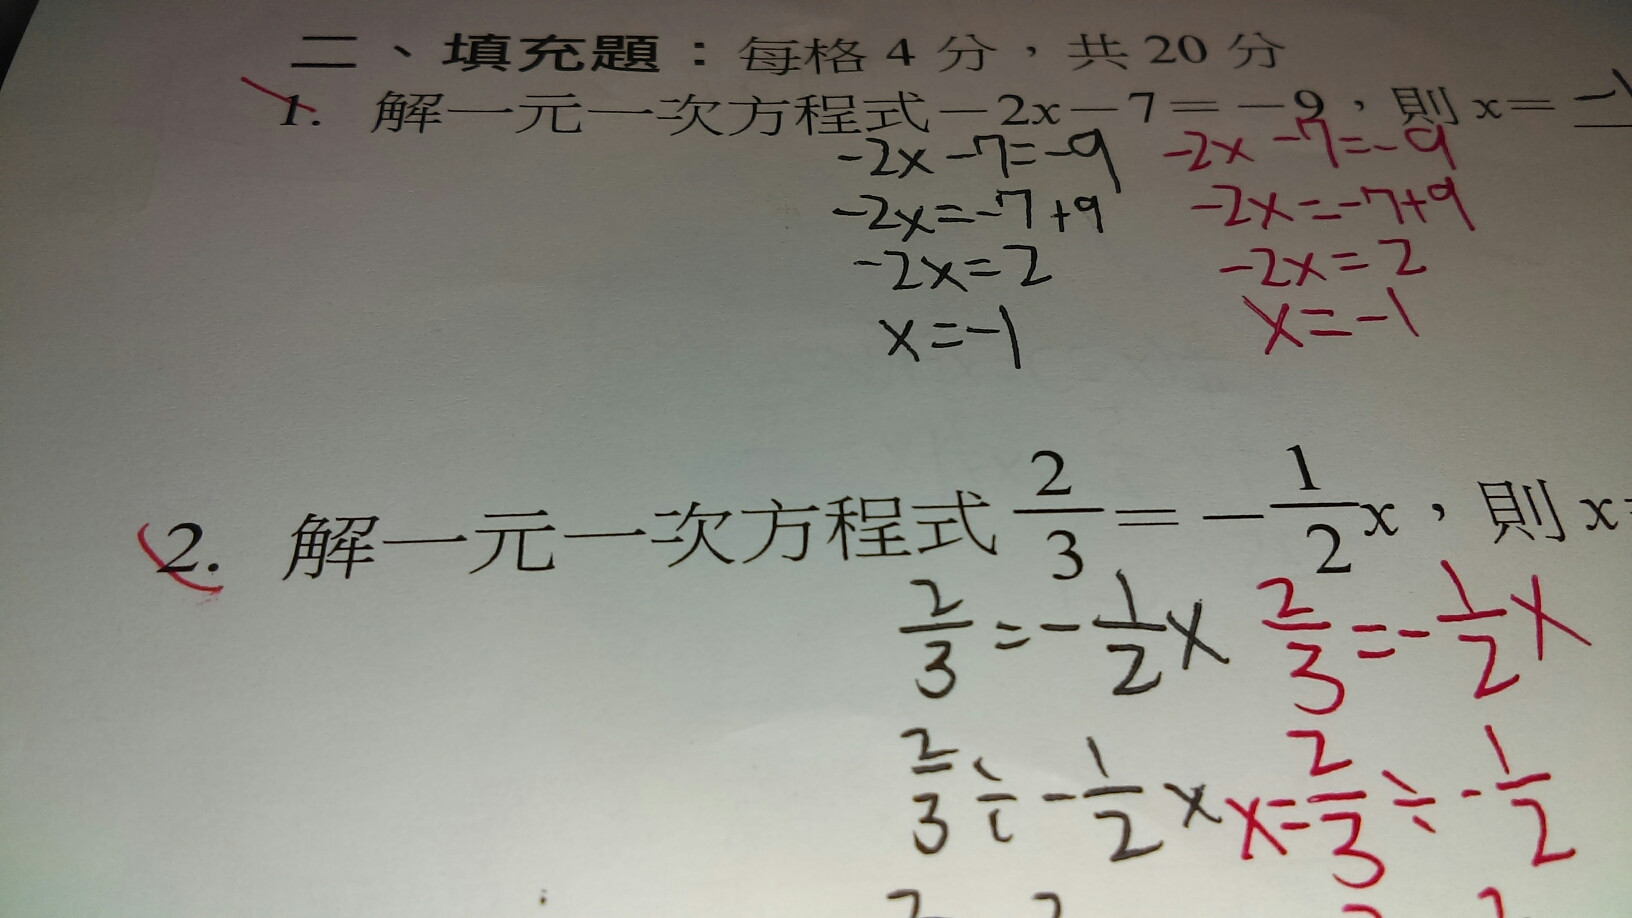 二、填充題：每格 4 分，共 20 分
1. 解一元一次方程式－2x－7＝－9，則 x＝ －1
-2x -7=-9 -2x -7=-9
-2x=-7+9 -2x=-7+9
-2x=2 -2x=2
x=-1 x=-1
2. 解一元一次方程式 2/3＝－1/2x，則 x＝
2/3=-1/2x 2/3=-1/2x
2/3÷-1/2x x=2/3÷-1/2